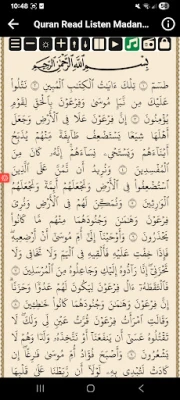 10:48
88
Quran Read Listen Madan...
بِسْمِ ٱللَّهِ ٱلرَّحْمَٰنِ ٱلرَّحِيمِ
طسٓمٓ ١ تِلْكَ ءَايَٰتُ ٱلْكِتَٰبِ ٱلْمُبِينِ ٢ نَتْلُوا۟
عَلَيْكَ مِن نَّبَإِ مُوسَىٰ وَفِرْعَوْنَ بِٱلْحَقِّ لِقَوْمٍ
يُؤْمِنُونَ ٣ إِنَّ فِرْعَوْنَ عَلَا فِى ٱلْأَرْضِ وَجَعَلَ
أَهْلَهَا شِيَعًا يَسْتَضْعِفُ طَآئِفَةً مِّنْهُمْ يُذَبِّحُ
أَبْنَآءَهُمْ وَيَسْتَحْىِۦ نِسَآءَهُمْ إِنَّهُۥ كَانَ مِنَ
ٱلْمُفْسِدِينَ ٤ وَنُرِيدُ أَن نَّمُنَّ عَلَى ٱلَّذِينَ
ٱسْتُضْعِفُوا۟ فِى ٱلْأَرْضِ وَنَجْعَلَهُمْ أَئِمَّةً وَنَجْعَلَهُمُ
ٱلْوَٰرِثِينَ ٥ وَنُمَكِّنَ لَهُمْ فِى ٱلْأَرْضِ وَنُرِىَ
فِرْعَوْنَ وَهَٰمَٰنَ وَجُنُودَهُمَا مِنْهُم مَّا كَانُوا۟
يَحْذَرُونَ ٦ وَأَوْحَيْنَآ إِلَىٰٓ أُمِّ مُوسَىٰٓ أَنْ أَرْضِعِيهِ
فَإِذَا خِفْتِ عَلَيْهِ فَأَلْقِيهِ فِى ٱلْيَمِّ وَلَا تَخَافِى وَلَا
تَحْزَنِىٓ إِنَّا رَآدُّوهُ إِلَيْكِ وَجَاعِلُوهُ مِنَ ٱلْمُرْسَلِينَ ٧
فَٱلْتَقَطَهُۥٓ ءَالُ فِرْعَوْنَ لِيَكُونَ لَهُمْ عَدُوًّا وَحَزَنًا
إِنَّ فِرْعَوْنَ وَهَٰمَٰنَ وَجُنُودَهُمَا كَانُوا۟ خَٰطِـِٔينَ ٨
وَقَالَتِ ٱمْرَأَتُ فِرْعَوْنَ قُرَّتُ عَيْنٍ لِّى وَلَكَ لَا
تَقْتُلُوهُ عَسَىٰٓ أَن يَنفَعَنَآ أَوْ نَتَّخِذَهُۥ وَلَدًا وَهُمْ لَا
يَشْعُرُونَ ٩ وَأَصْبَحَ فُؤَادُ أُمِّ مُوسَىٰ فَٰرِغًا إِن
كَادَتْ لَتُبْدِى بِهِۦ لَوْلَآ أَن رَّبَطْنَا عَلَىٰ قَلْبِهَا